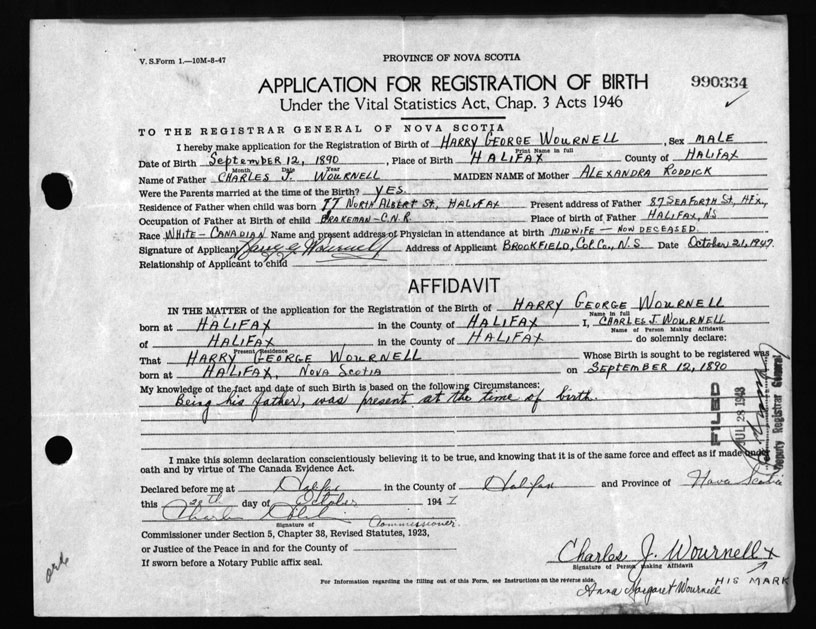 V. S. Form 1.—10M-8-47
PROVINCE OF NOVA SCOTIA
APPLICATION FOR REGISTRATION OF BIRTH
990334
Under the Vital Statistics Act, Chap. 3 Acts 1946
TO THE REGISTRAR GENERAL OF NOVA SCOTIA
I hereby make application for the Registration of Birth of HARRY GEORGE WOURNELL, Sex MALE
Print Name in full
Date of Birth September 12, 1890, Place of Birth HALIFAX County of HALIFAX
Month Date Year
Name of Father CHARLES J. WOURNELL MAIDEN NAME of Mother ALEXANDRA RODDICK
Were the Parents married at the time of the Birth? YES.
Residence of Father when child was born 77 NORTH ALBERT ST, HALIFAX Present address of Father 87 SEAFORTH ST, HFX,
Occupation of Father at Birth of child BRAKEMAN - C.N.R. Place of birth of Father HALIFAX, N.S
Race WHITE - CANADIAN Name and present address of Physician in attendance at birth MIDWIFE — NOW DECEASED.
Signature of Applicant Harry G Wournell Address of Applicant BROOKFIELD, COL. CO., N.S Date October 21, 1947.
Relationship of Applicant to child
AFFIDAVIT
IN THE MATTER of the application for the Registration of the Birth of HARRY GEORGE WOURNELL
Name in full
born at HALIFAX in the County of HALIFAX I, CHARLES J. WOURNELL
Name of Person Making Affidavit
of HALIFAX in the County of HALIFAX do solemnly declare:
Present Residence
That HARRY GEORGE WOURNELL Whose Birth is sought to be registered was
born at HALIFAX, NOVA SCOTIA on SEPTEMBER 12, 1890
My knowledge of the fact and date of such Birth is based on the following Circumstances:
Being his father, was present at the time of birth.
FILED
JUL 28 1948
Deputy Registrar General
I make this solemn declaration conscientiously believing it to be true, and knowing that it is of the same force and effect as if made under
oath and by virtue of The Canada Evidence Act.
Declared before me at Halifax in the County of Halifax and Province of Nova Scotia
this day of October 1947
Charles
Signature of Commissioner.
Commissioner under Section 5, Chapter 38, Revised Statutes, 1923,
or Justice of the Peace in and for the County of
If sworn before a Notary Public affix seal.
Charles J. Wournell x
Signature of Person Making Affidavit
HIS MARK
For Information regarding the filling out of this Form, see Instructions on the reverse side.
Anna Margaret Wournell